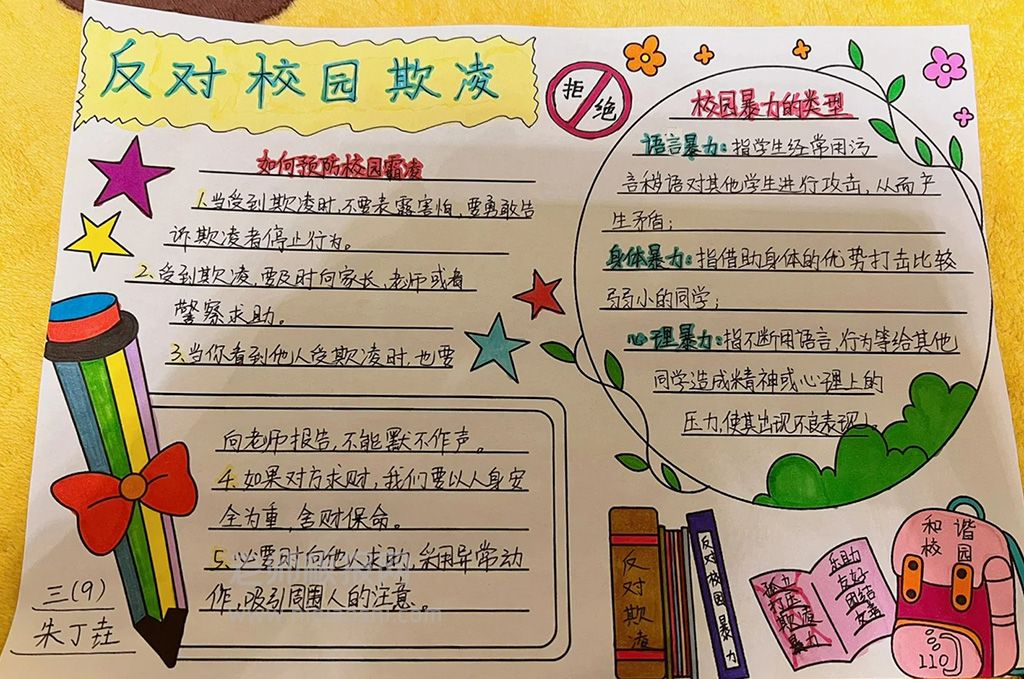 反对校园欺凌
拒绝
如何预防校园霸凌
1.当受到欺凌时,不要表露害怕,要勇敢告
诉欺凌者停止行为。
2.受到欺凌,要及时向家长,老师或者
警察求助。
3.当你看到他人受欺凌时,也要
向老师报告,不能默不作声。
4.如果对方求财,我们要以人身安
全为重,舍财保命。
5.必要时向他人求助,采用异常动
作,吸引周围人的注意。
三(9)
朱丁垚
校园暴力的类型
语言暴力:指学生经常用污
言秽语对其他学生进行攻击,从而产
生矛盾;
身体暴力:指借助身体的优势打击比较
弱小的同学;
心理暴力:指不断用语言,行为等给其他
同学造成精神或心理上的
压力,使其出现不良表现。
反对欺凌
反对校园暴力
孤立
打压
欺凌
暴力
乐助
友好
团结
友善
和谐
校园
110